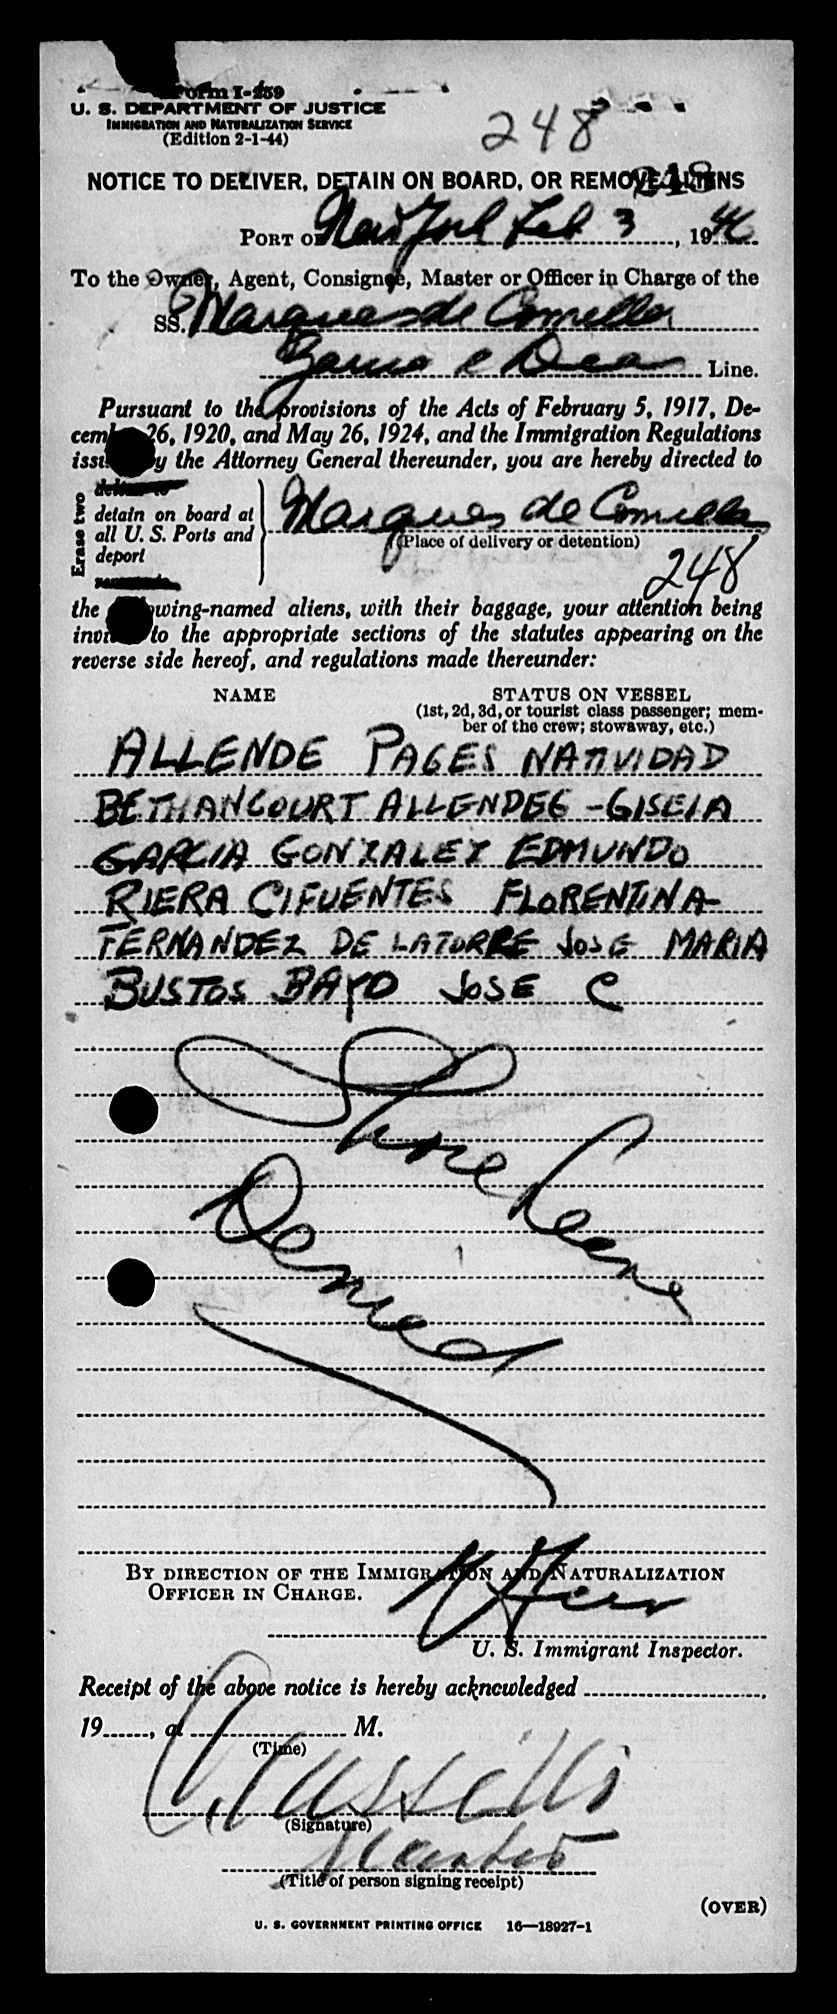 Form I-259
U. S. DEPARTMENT OF JUSTICE
IMMIGRATION AND NATURALIZATION SERVICE
(Edition 2-1-44)
248
NOTICE TO DELIVER, DETAIN ON BOARD, OR REMOVE ALIENS
248
PORT OF New York Feb 3, 1946
To the Owner, Agent, Consignee, Master or Officer in Charge of the
SS. Marques de Comillas
Garcia & Diaz Line.
Pursuant to the provisions of the Acts of February 5, 1917, De-
cember 26, 1920, and May 26, 1924, and the Immigration Regulations
issued by the Attorney General thereunder, you are hereby directed to
Erase two
deliver to
detain on board at
all U. S. Ports and
deport
Marques de Comillas
(Place of delivery or detention)
248
the following-named aliens, with their baggage, your attention being
invited to the appropriate sections of the statutes appearing on the
reverse side hereof, and regulations made thereunder:
NAME
STATUS ON VESSEL
(1st, 2d, 3d, or tourist class passenger; mem-
ber of the crew; stowaway, etc.)
ALLENDE PAGES NATIVIDAD
BETHANCOURT ALLENDEG - GISELA
GARCIA GONZALEZ EDMUNDO
RIERA CIFUENTES FLORENTINA-
FERNANDEZ DE LATORRE JOSE MARIA
BUSTOS BAYO JOSE C
Shore Leave
Denied
BY DIRECTION OF THE IMMIGRATION AND NATURALIZATION
OFFICER IN CHARGE.
U. S. Immigrant Inspector.
Receipt of the above notice is hereby acknowledged
19, at M.
(Time)
(Signature)
(Title of person signing receipt)
(OVER)
U. S. GOVERNMENT PRINTING OFFICE 16—18927-1